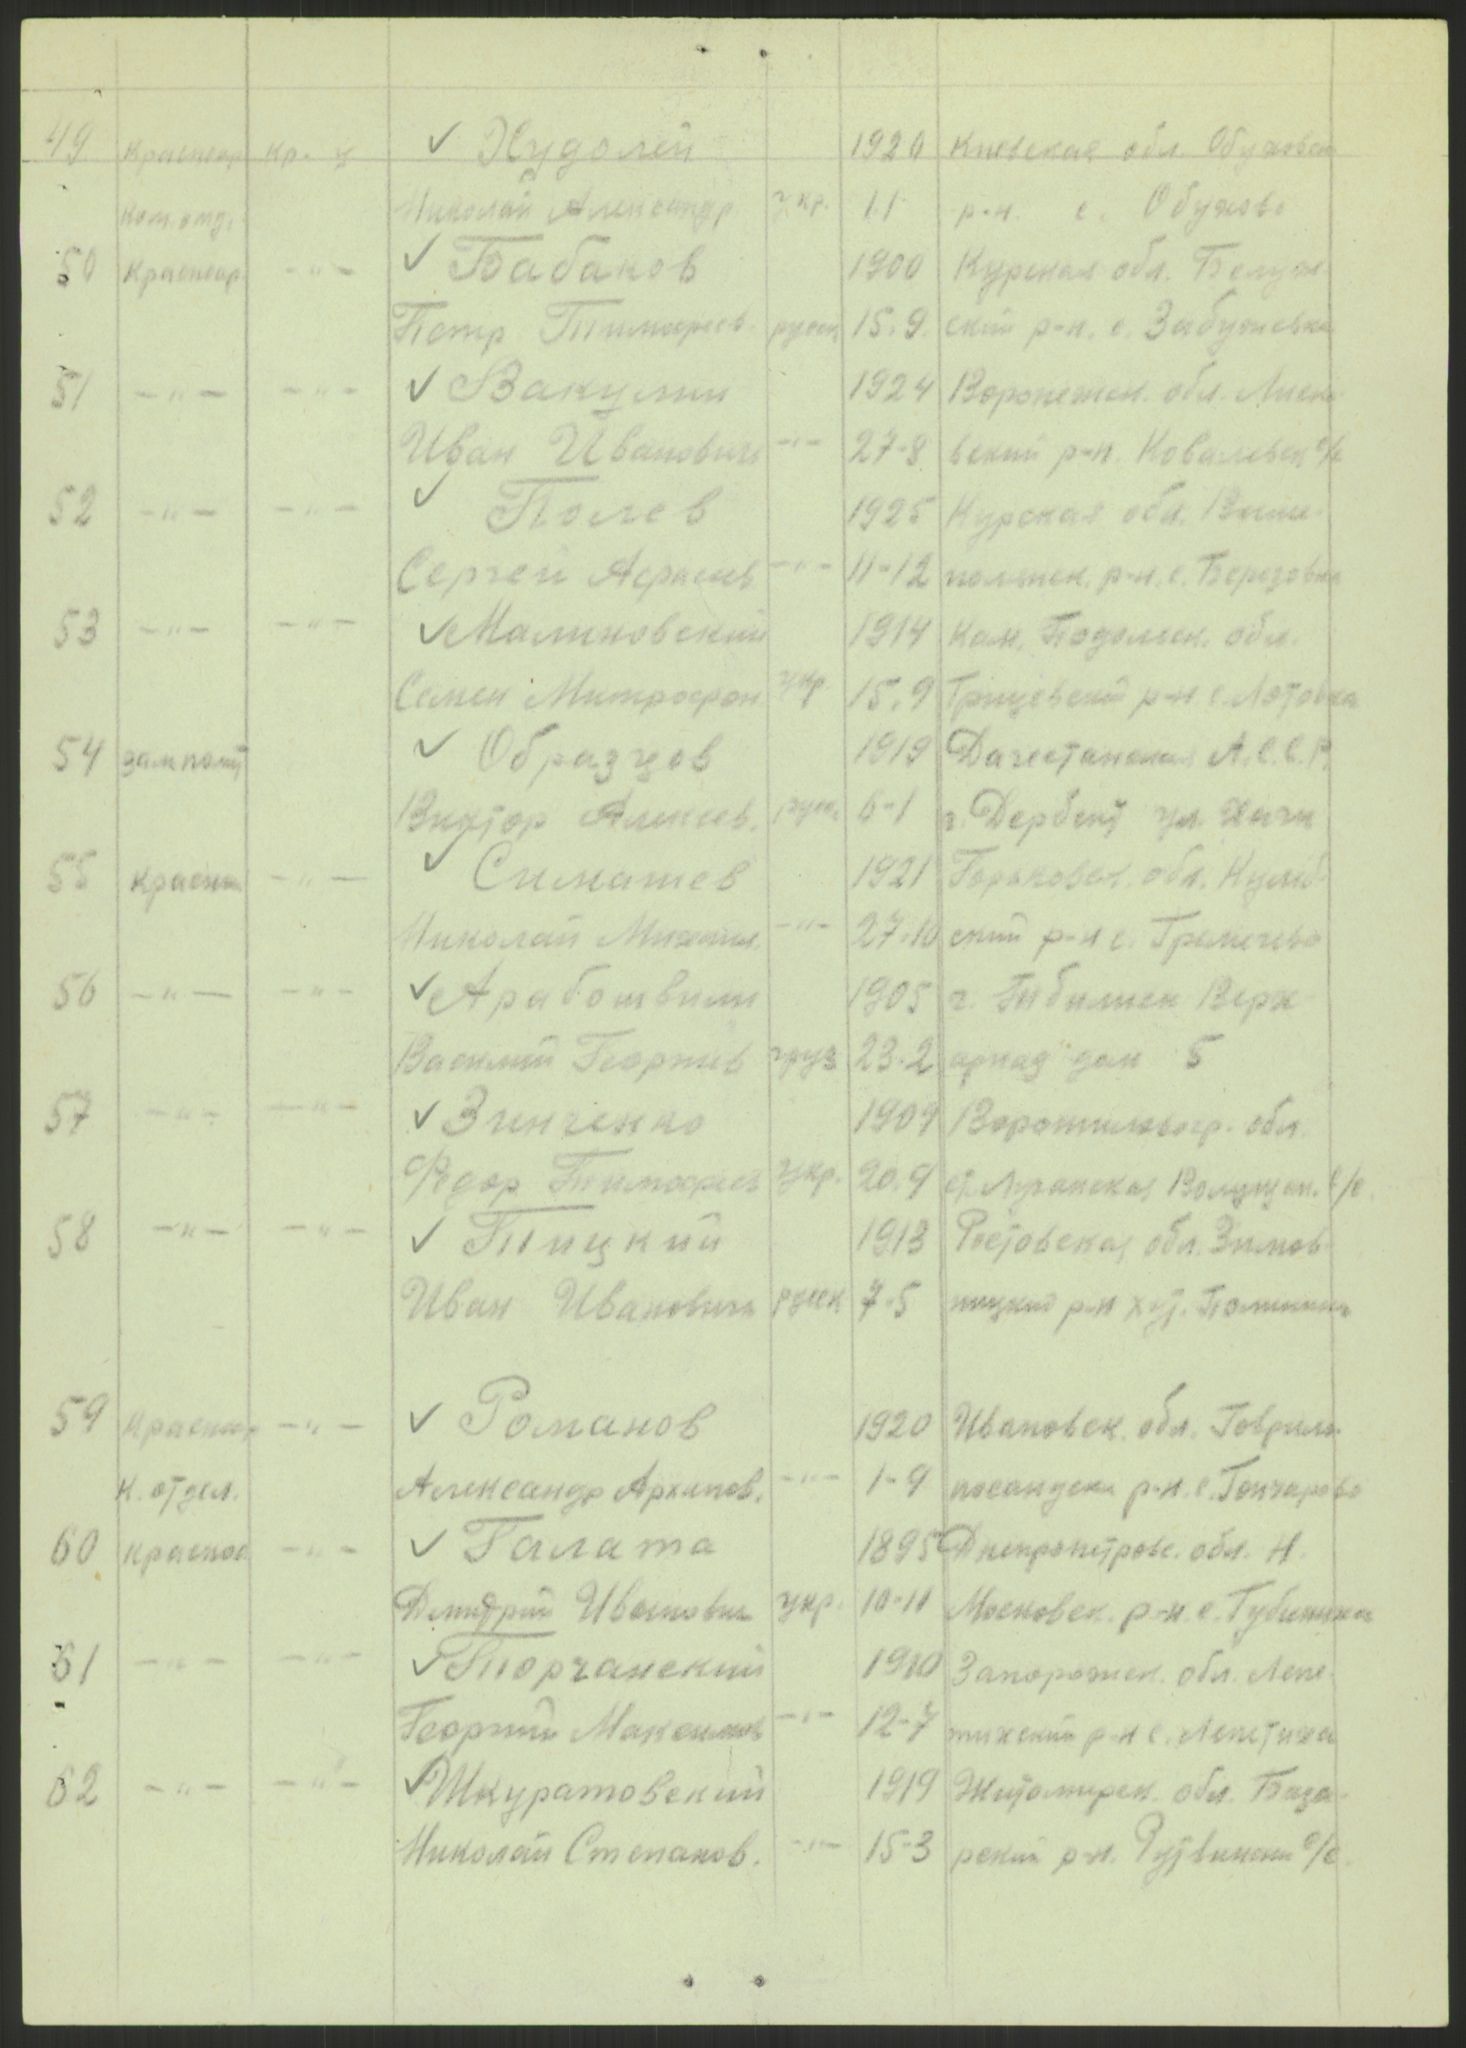 49 красноар кр-ц ✓ Худолей 1920 Киевская обл. Обуховск
ком. отд. Николай Александр укр. 1.1 р-н. с. Обухово
50 красноар. -"- ✓ Бабаков 1900 Курская обл.
Петр Тимофеев. русск 15.9. ский р-н. с.
51 -"- -"- ✓ Вакулин 1924 Воронежск. обл. Лиски
Иван Иванович -"- 27-8 вский р-н. Ковалевск с/с
52 -"- -"- ✓ Полев 1925 Курская обл.
Сергей -"- 11-12 р-н. с. Березовка
53 -"- -"- ✓ Малиновский 1914 Кам. Подольск. обл.
Семен Митрофан укр. 15.9 Грицевский р-н. с. Лотовка
54 зам полит ✓ Образцов 1919 Дагестанская А.С.С.Р.
Виктор Алексеев. русск. 6-1 г. Дербент ул.
55 красноа -"- ✓ Симашев 1921 Горьковск. обл.
Николай Михаил. -"- 27.10 ский р-н с. Гремячево
56 -"- -"- ✓ Арабошвили 1905 г. Тибилиси Верх
Василий Георгиев груз 23.2 аркад дом 5
57 -"- -"- ✓ Зинченко 1909 Ворошиловогр. обл.
Федор Тимофеев укр. 20.9 ст. Луганская с/с.
58 -"- -"- ✓ Тицкий 1913 Ростовская обл. Зимов
Иван Иванович русск 7-5 ницкий р-н хут.
59 Красноар -"- ✓ Романов 1920 Ивановск. обл. Гаврило
к. отдел. Александр Архипов. -"- 1-9 посадск р-н. с. Гончарово
60 красноа -"- ✓ Галата 1895 Днепропетровс. обл. Н.
Дмитрий Иванович укр. 10-11 Московск. р-н. с. Губиниха
61 -"- -"- ✓ Торчанский 1910 Запорожск. обл. Лепе-
Георгий Максимов -"- 12-7 тихский р-н с. Лепетиха
62 -"- -"- ✓ Шкуратовский 1919 Житомирск. обл. База-
Николай Степанов. -"- 15-3 рский р-н. с/с.